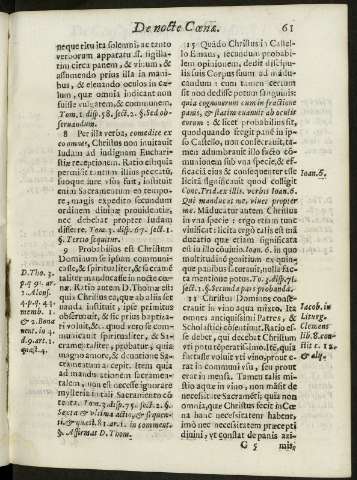 De nocte Cœnæ. 61
neque ritu ita solemni, ac tanto
verborum apparatu sigilla-
tim circa panem, & vinum, &
assumendo prius illa in mani-
bus, & eleuando oculos in cæ-
lum, quæ omnia indicant non
fuisse vulgarem, & communem.
Tom. 3. disp. 58. sect. 2. §. Sed ob-
seruandum.
8 Per illa verba, comedite ex
eo omnes, Christus non inuitauit
Iudam ad indignam Eucharis-
tiæ receptionem. Ratio est: quia
permisit tantum illius peccatũ,
suoque iure vsus fuit, instituit
enim Sacramentum eo tempo-
re, magis expedito secundum
ordinem diuinæ prouidentiæ,
nec debebat propter Iudam
differre. Tom. 3. disp. 67. sect. 1.
§. Tertio sequitur.
9 Probabilius est Christum
Dominum se ipsum communi-
casse, & spiritualiter, & sacramẽ
taliter manducasse in nocte cœ-
næ. Ratio autem D. Thomæ est:
quia Christus ea, quæ ab aliis ser
uanda instituit, ipse primitus
obseruauit, & sic prius baptiza-
ri voluit, &c. quod vero se com-
municauit spiritualiter, & Sa-
cramentaliter, probatur; quia
magno amore, & deuotione Sa-
cramentum accepit. Item quia
ad manducationem sacramen-
talem, non est necesse ignorare
mysteria in tali Sacramento cõ
tenta. Tom. 3. disp. 75. sect. 2. §.
Sexta & vltima actio, & sequen-
ti, & quæst. 81. ar. 1. in comment.
§. Affirmat D. Thom.
D. Tho. 3.
p. q. 81. ar.
1. Alens.
4. p. q. 43.
memb. 1.
& 2. Bona
ment. in 4.
d. 9. art. 1.
quæst. 4.
Quãdo Christus in Castel-
lo Emaus, secundum probabi-
lem opinionem, dedit discipu-
lis suis Corpus suum ad mãdu-
candum: cum tamen certum
sit non dedisse potum sanguinis:
quia cognouerunt eum in fractione
panis, & statim euanuit ab oculis
eorum: & licet probabilius sit,
quod quando fregit panẽ in ip-
so Castello, non consecrauit, ta-
men adumbrauit illo facto cõ-
munionem sub vna specie, & ef-
ficacia eius, & consequenter vti-
licitã significauit quod colligit
Conc. Trident. illis verbis Ioan. 6.
Qui manducat me, viuet propter
me. Māducatur autem Christus
in vna specie: ergo etiam tunc
viuificat: licita ergo est illa mã
ducatio quæ etiam significata
est in illo conuiuio. Ioan. 6. in quo
multitudinẽ gentium ex quin-
que panibus saturauit, nulla fac-
ta mentione potus. To. 3. disp. 71.
sect. 1. §. Secunda pars probanda.
11 Christus Dominus conse-
crauit in vino aqua mixto. Ita
omnes antiquissimi Patres, &
Scholastici cõsentiunt. Ratio es-
se debet, qui decebat Christum
vti potu tẽperatissimo. Itẽ, quia
fortasse voluit vti vino, prout e-
rat in communi vsu, seu prout
erat in mensa. Tamen talis mi-
stio aquæ in vino, non mãsit de
necessitate Sacramẽti; quia non
omnia, quæ Christus fecit in Cœ
na hanc necessitatem habent,
imò nec necessitatem præcepti
diuini, vt constat de panis azi-
Ioan. 6.
Iacob. in
Liturg.
Clemens
lib. 8. con-
stit. c. 12.
& alij.
G 5 mis,